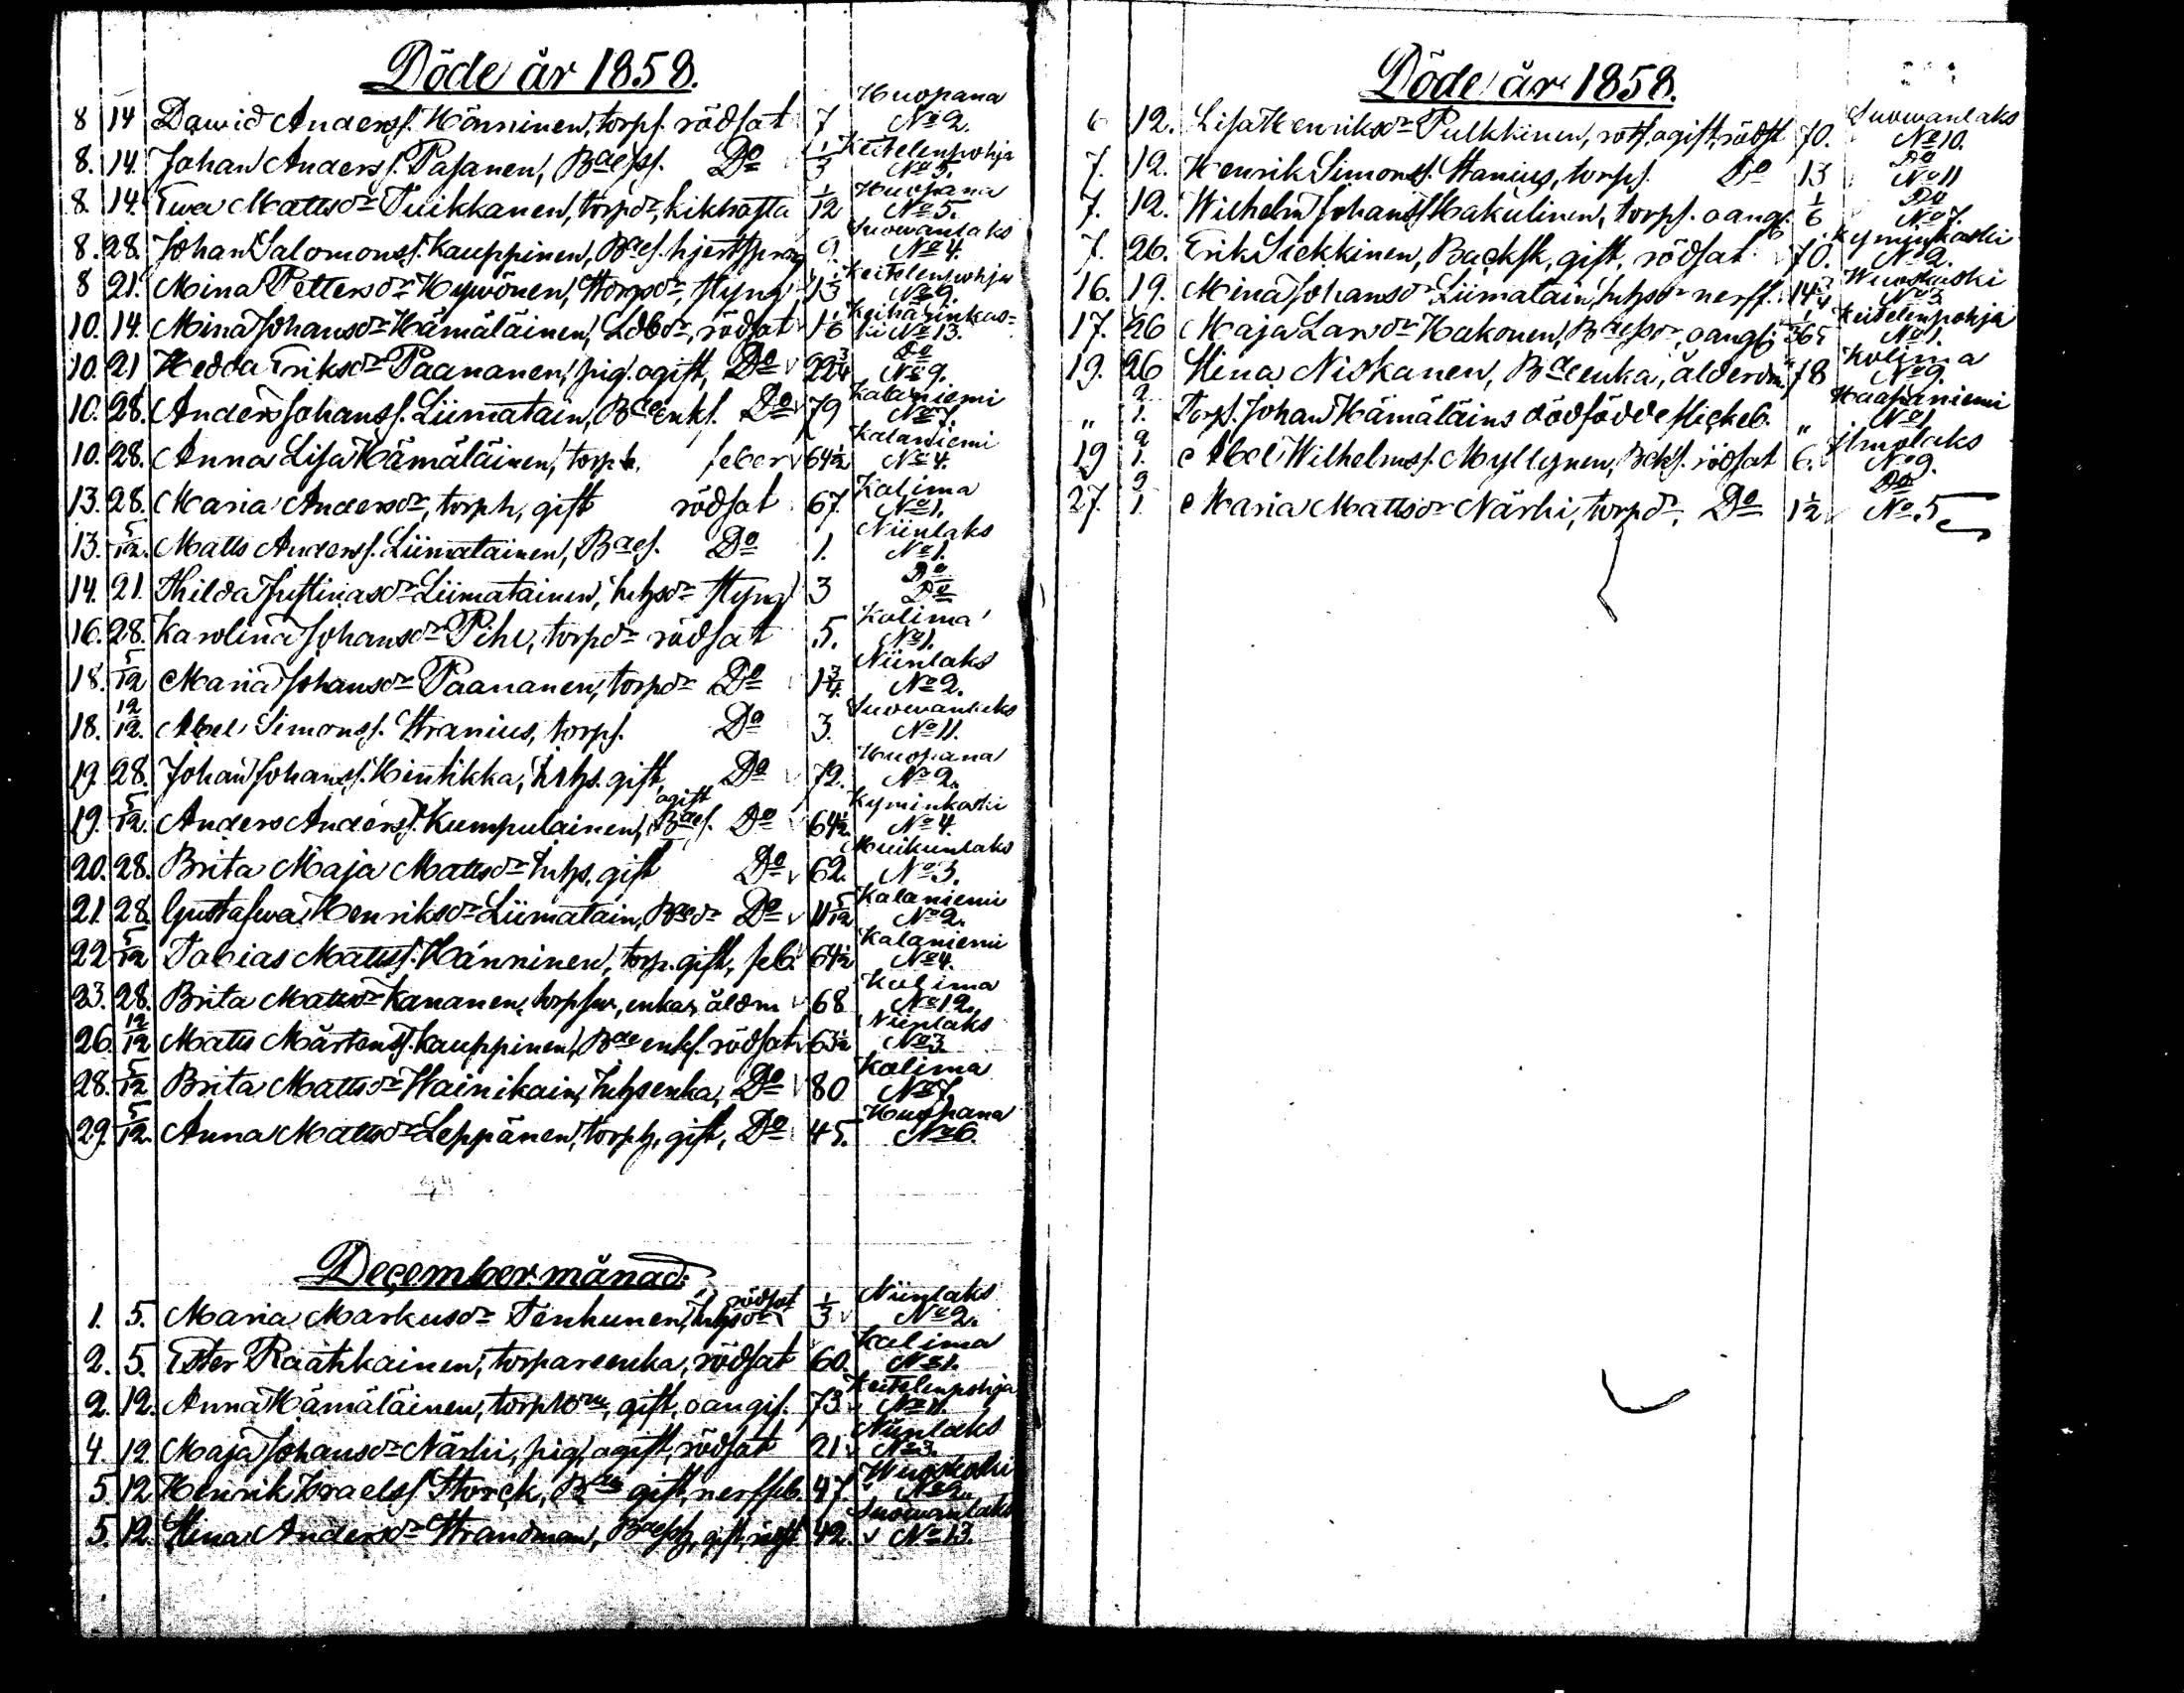 Döde år 1858.
8 14 Dawid Anderss. Hänninen, torps. rödsot 7 Huopana № 2.
8. 14. Johan Anderss. Pasanen, Bdess. Do 1/3 Keitelenpohja № 5.
8. 14. Ewa Mattsdr Tuikkanen, torpdr, kikhosta 1/12 Huopana № 5.
8. 28. Johan Salomonss. Kauppinen, Bdes. hjertsprång 9. Suowanlaks № 4.
8 21. Mina Pettersdr Hywönen, torpdr, styng 1 1/3 Keitelenpohja № 9.
10. 14. Mina Johansdr Hämäläinen, Ldbdr, rödsot 1 1/6 Keihärinkoski № 13.
10. 21 Hedda Eriksdr Paananen, pig. ogift, Do 22 3/4 Do № 9.
10. 28. Anders Johanss. Liimatain, Bde enkl. Do 79 Kalaniemi № 7.
10. 28. Anna Lisa Hämäläinen, torph. feber 64 1/2 Kalaniemi № 4.
13. 28. Maria Andersdr, torph, gift rödsot 67. Kolima № 1.
13. 5/12. Matts Anderss. Liimatainen, Bdes. Do 1. Niinlaks № 1.
14. 21. Hilda Justinasdr Liimatainen, inhysdr styng 3 Do Do
16. 28. Karolina Johansdr Pihe, torpdr rödsot 5. Kolima № 1.
18. 5/12 Maria Johansdr Paananen, torpdr Do 1 3/4. Niinlaks № 2.
18. 12/12. Abel Simonss. Stranius, torps. Do 3. Suowanlaks № 11.
19. 28. Johan Johanss. Hintikka, inhys. gift, Do 72. Huopana № 2.
19. 5/12. Anders Anderss. Kumpulainen, ogift Bdes. Do 64 1/2. Kyminkoski № 4.
20. 28. Brita Maja Mattsdr inhys. gift Do 62. Muikunlaks № 3.
21. 28. Gustafwa Henriksdr Liimatain, Bdedr Do 11 5/12 Kalaniemi № 2.
22 5/12 Tobias Mattss. Hänninen, torp. gift, feb. 64 1/2 Kalaniemi № 4.
23. 28. Brita Mattsdr Kananen, enka, äldm 68 Kolima № 12.
26. 12/12 Matts Mårtenss. Kauppinen, Bde enkl. rödsot 63 1/2 Niinlaks № 3
28. 5/12 Brita Mattsdr Wainikain, inhysenka, Do 80 Kolima № 7.
29. 5/12. Anna Mattsdr Leppänen, torph, gift, Do 45. Huopana № 6.
December månad.
1. 5. Maria Markusdr Tenhunen, inhysdr rödsot 1/3 Niinlaks № 2.
2. 5. Ester Raatikainen, torpareenka, rödsot 60. Kolima № 1.
2. 12. Anna Hämäläinen, gift, oangif. 73. Keitelenpohja № 11.
4. 12 Maja Johansdr Närhi, pig, ogift, rödsot 21. Niinlaks № 3.
5. 12 Henrik Israelss. Storck, Bde gift, nerffeb. 47. Wuoskoski № 2.
5. 12. Stina Andersdr Strandman, gift, rödst. 42. Suowanlaks № 13.
Döde år 1858.
6 12. Lisa Henriksdr Pulkkinen, ogift, rödst 70. Suowanlaks № 10.
7. 12. Henrik Simonss. Stranius, torps. Do 13 Do № 11
7. 12. Wilhelm Johanss. Hakulinen, torps. oangf. 1/6 Do № 7.
7. 26. Erik Siekkinen, Backsk, gift, rödsot 70. Kyminkoski № 2.
16. 19. Mina Johansdr Liimatain, inhysdr nerff. 14 3/4 Wuoskoski № 3
17. 26 Maja Larsdr Hakonen, oangf. 1/365 Keitelenpohja № 1.
19. 26 Stina Niskanen, Bdeenka, ålderdm 78 Kolima № 9.
„ 2/1. Torp. Johan Hämäläins dödfödde flickeb. „ Haapaniemi № 1
19 2/1. Abel Wilhelmss. Myllynen, Bcks. rödsot 6. Ilmolaks № 9.
27. 9/1. Maria Mattsdr Närhi, torpdr. Do 1 1/2 Do № 5